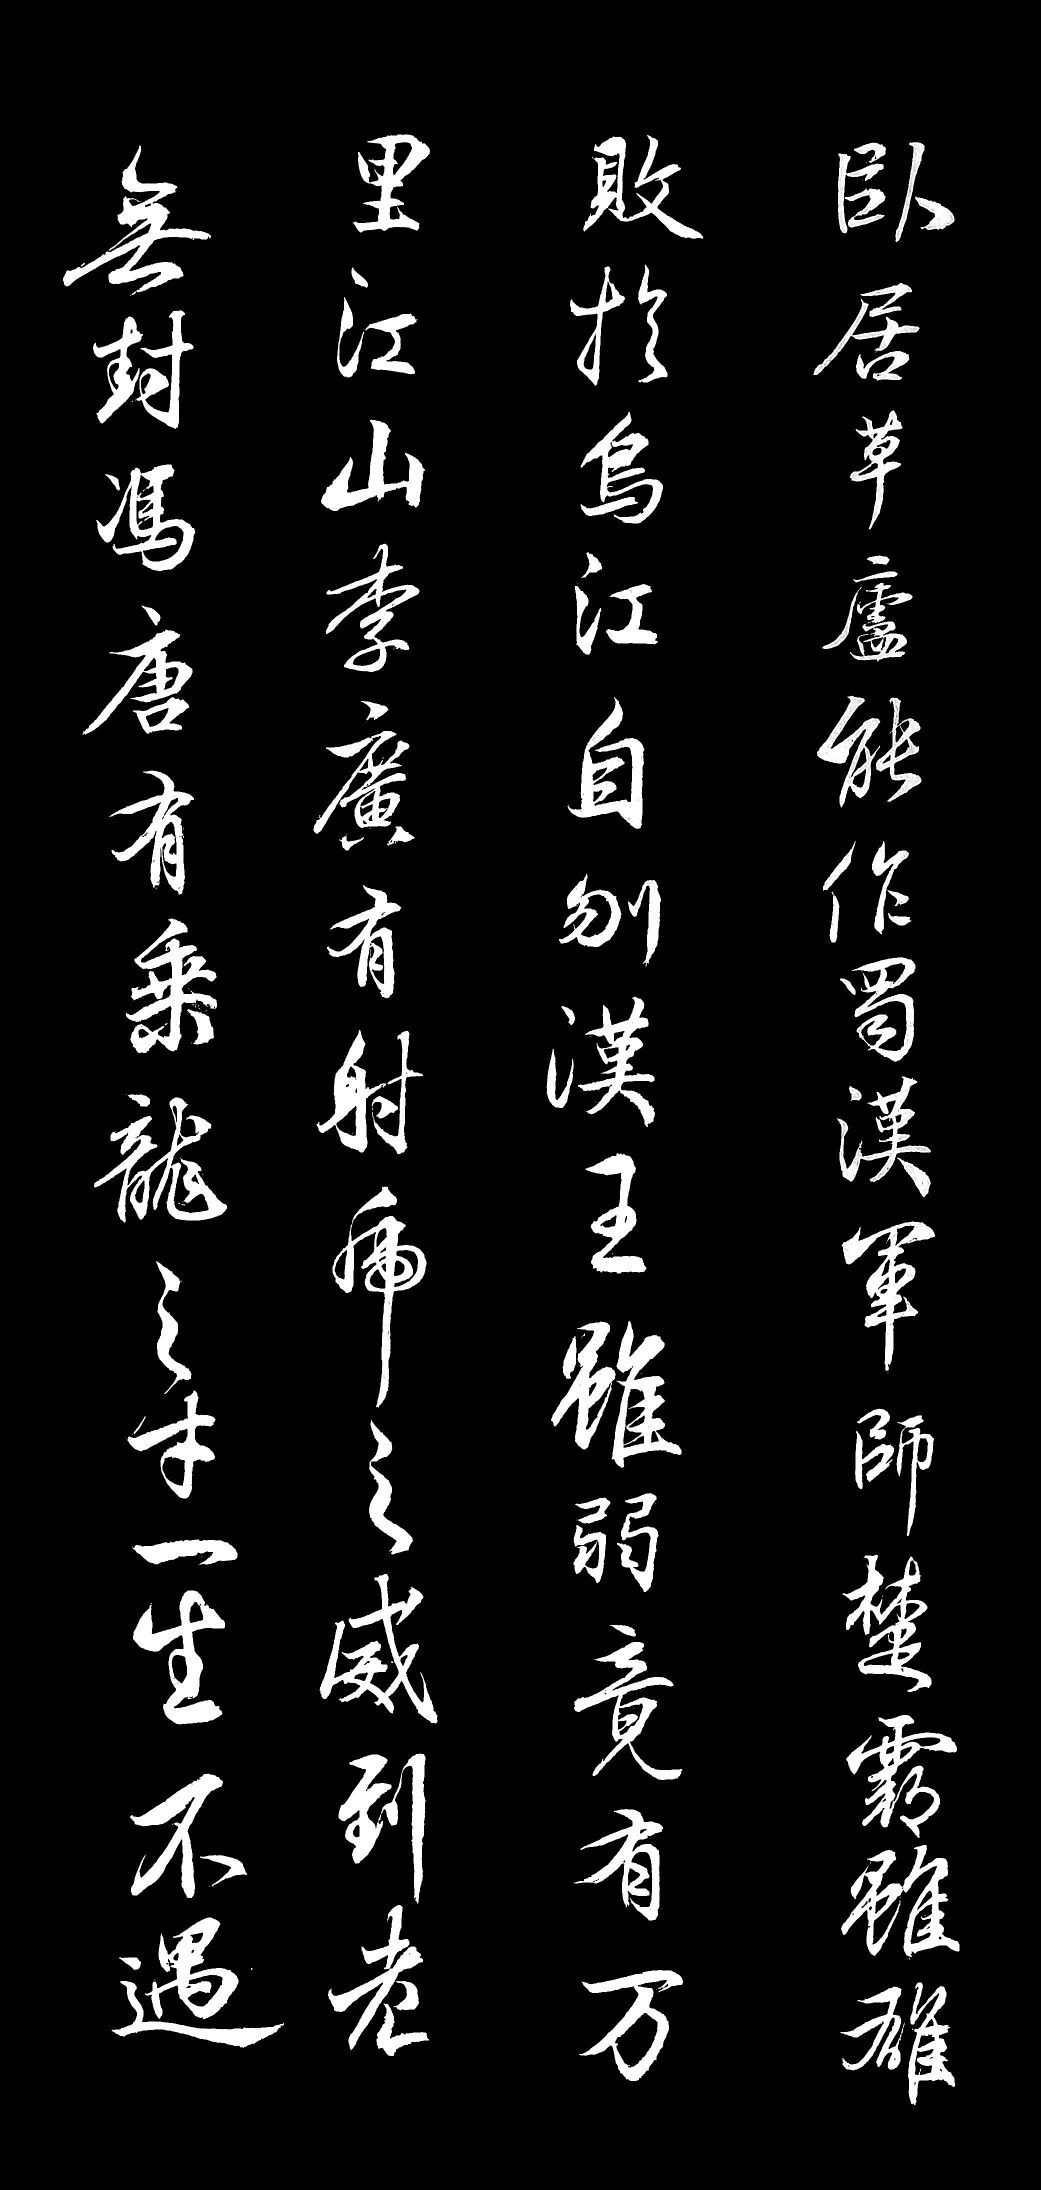 臥居草廬能作蜀漢軍師楚霸雖雄
敗於烏江自刎漢王雖弱竟有万
里江山李廣有射虎之威到老
無封馮唐有乗龍之才一生不遇